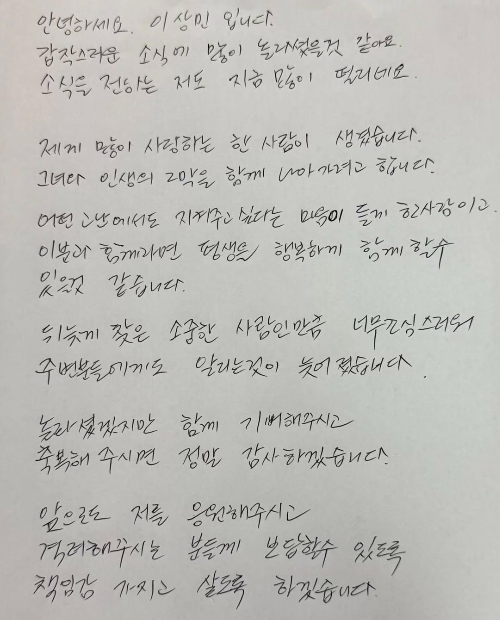 안녕하세요. 이상민 입니다.
갑작스러운 소식에 많이 놀라셨을것 같아요.
소식을 전하는 저도 지금 많이 떨리네요.
제게 많이 사랑하는 한 사람이 생겼습니다.
그녀와 인생의 2막을 함께 나아가려고 합니다.
어떤 고난에서도 지켜주고 싶다는 마음이 들게 한사람이고.
이분과 함께라면 평생을 행복하게 함께 할수
있을것 같습니다.
뒤늦게 찾은 소중한 사람인만큼 너무 조심스러워
주변분들에게도 알리는것이 늦어졌습니다.
놀라셨겠지만 함께 기뻐해주시고
축복해 주시면 정말 감사하겠습니다.
앞으로도 저를 응원해주시고
격려해주시는 분들께 보답할수 있도록
책임감 가지고 살도록 하겠습니다.